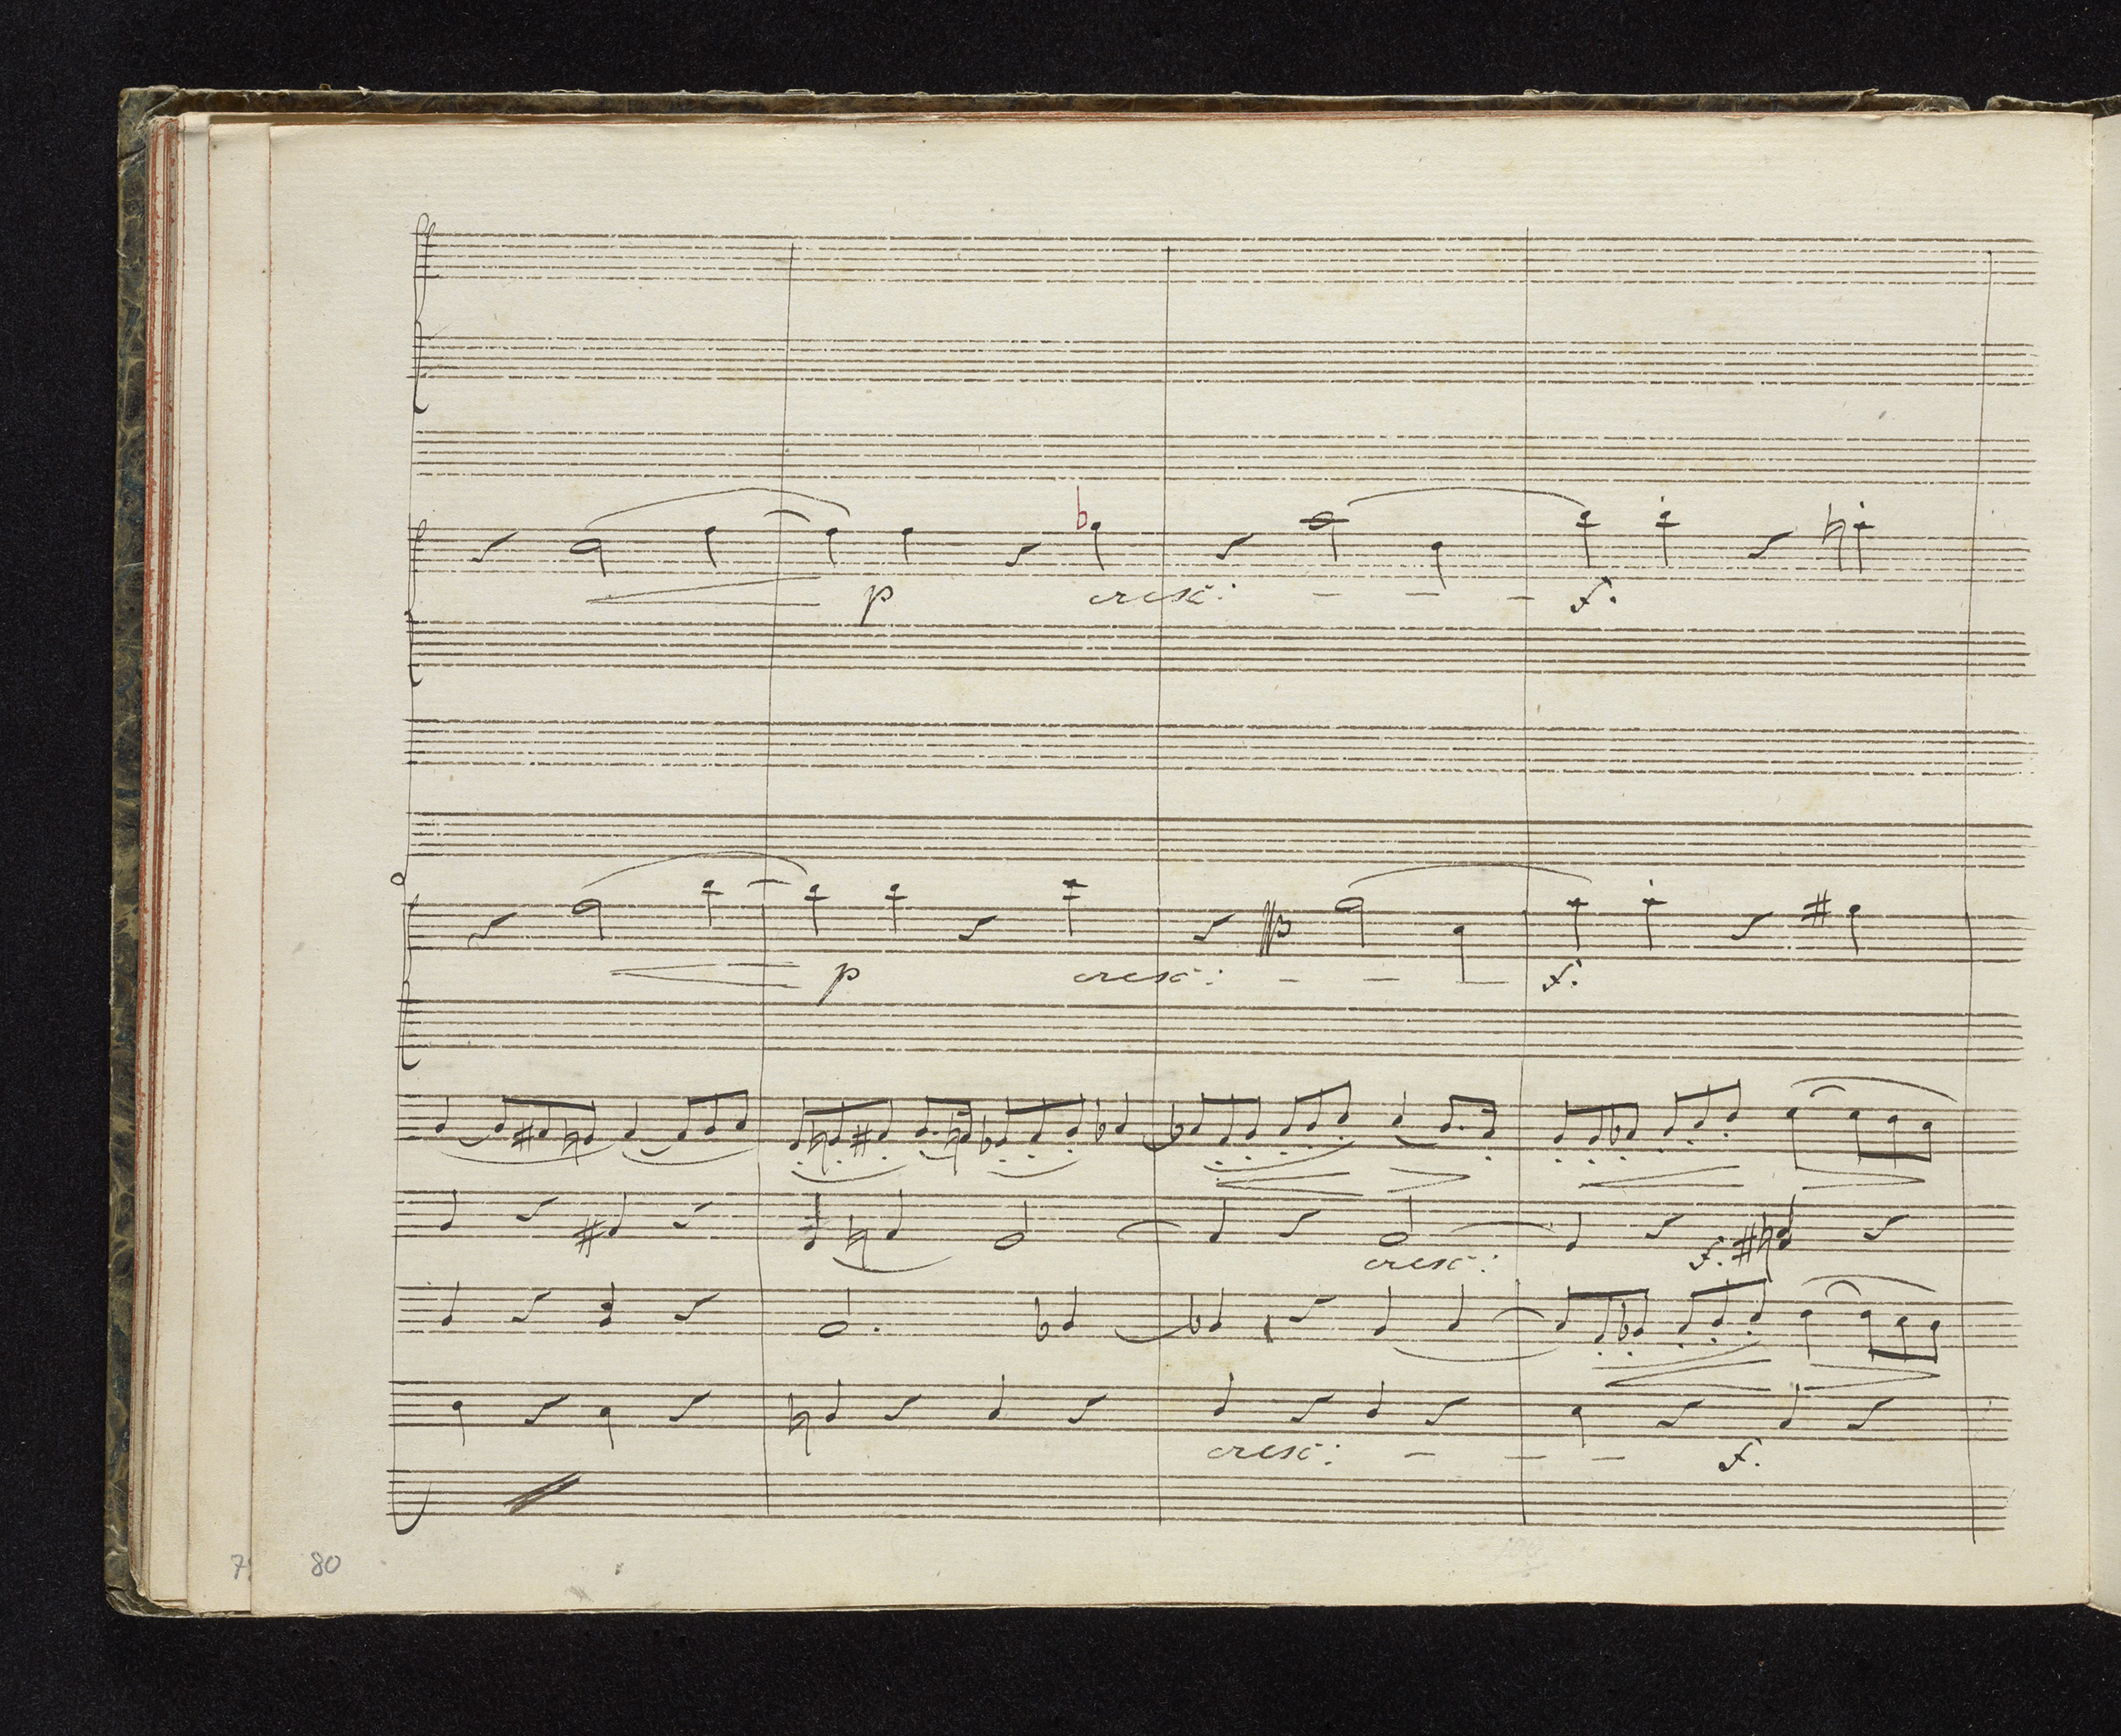 p cresc: f.
p cresc: f.
cresc: f.
cresc: f.
80